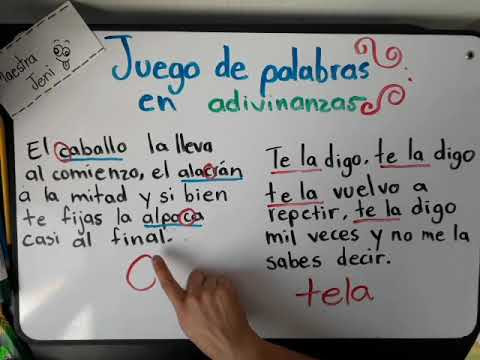 Maestra
Jeni
Juego de palabras
en adivinanzas
El caballo la lleva
al comienzo, el alacrán
a la mitad y si bien
te fijas la alpaca
casi al final.
C
Te la digo, te la digo
te la vuelvo a
repetir, te la digo
mil veces y no me la
sabes decir.
tela